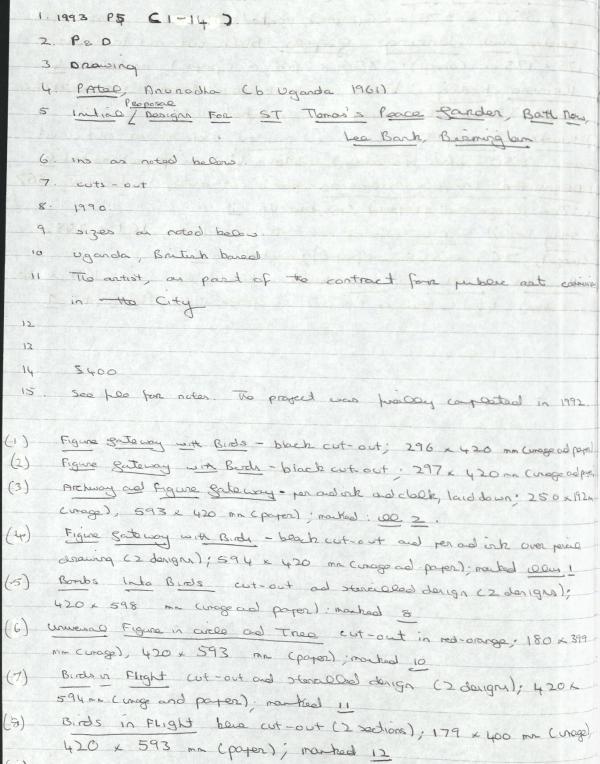 1. 1993 P5 (1-14)
2. P & D
3 Drawing
4 PAtel, Anuradha (b Uganda 1961)
5 Initial / Proposal Designs For ST Thomas's Peace Garden, Bath Row,
Lee Bank, Birmingham
6. Ins as noted below
7. cuts-out
8. 1990
9 sizes as noted below.
10 Uganda, British based
11 The artist, as part of the contract for public art
in the City
12
13
14 $400
15. See file for notes. The project was finally completed in 1992.
(-1) Figure Gateway with Birds - black cut-out; 296 x 420 mm (image ad paper)
(-2) Figure Gateway with Birds - black cut-out; 297 x 420 mm (image ad paper)
(-3) Archway ad Figure Gateway - pen ad ink ad chalk, laid down; 250 x 192m
(image), 593 x 420 mm (paper); marked: ill 2.
(-4) Figure Gateway with Birds - black cut-out and pen ad ink over pencil
drawing (2 designs); 594 x 420 mm (image ad paper); marked illus 1
(-5) Bombs Into Birds cut-out ad stencilled design (2 designs);
420 x 598 mm (image ad paper): marked 8
(6) Universal Figure in circle ad Tree cut-out in red-orange; 180 x 399
mm (image), 420 x 593 mm (paper); marked 10
(-7) Birds in Flight cut-out and stencilled design (2 designs); 420 x
594 mm (image and paper), marked 11
(-8) Birds in Flight blue cut-out (2 sections); 179 x 400 mm (image),
420 x 593 mm (paper); marked 12